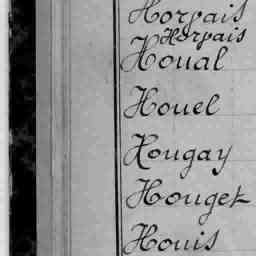 Horvais
Horvais
Houal
Houel
Hougay
Houget
Houis